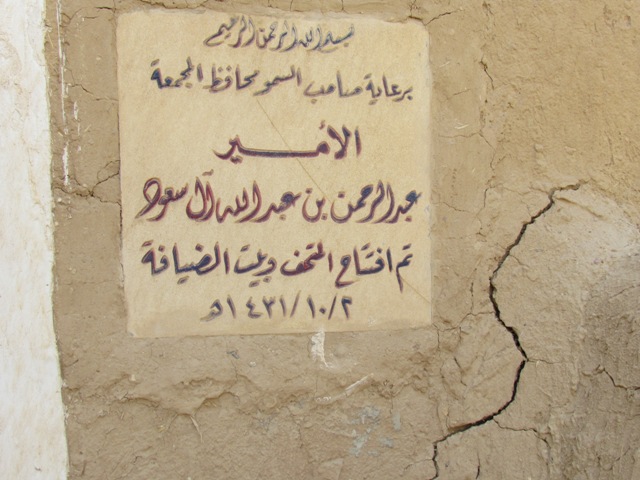 بسم الله الرحمن الرحيم
برعاية صاحب السمو محافظ المجمعة
الأمير
عبدالرحمن بن عبدالله آل سعود
تم افتتاح المتحف وبيت الضيافة
١٤٣١/١٠/٢هـ